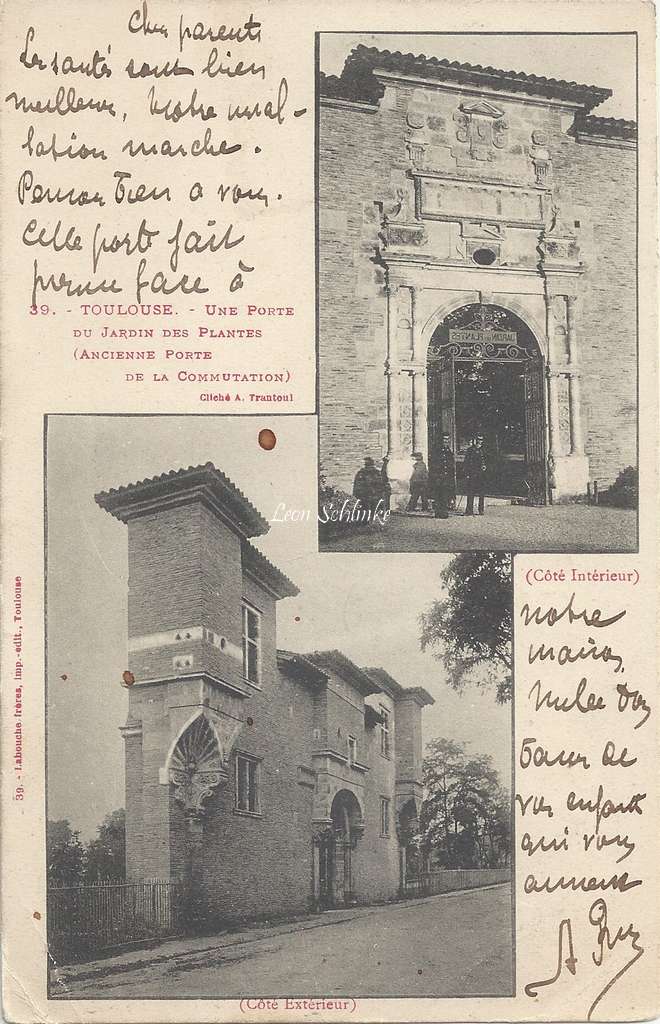 Chers parents
Les santés sont bien
meilleures, Notre
marche.
Pensons bien a vous.
Cette porte fait
presque face à
39. - TOULOUSE. - UNE PORTE
DU JARDIN DES PLANTES
(ANCIENNE PORTE
DE LA COMMUTATION)
Cliché A. Trantoul
JARDIN DES PLANTES
Léon Schlinke
(Côté Intérieur)
notre
maison,
Mille bons
baisers de
vos enfants
qui vous
aiment
A
39. - Labouche frères, imp.-édit., Toulouse
(Côté Extérieur)